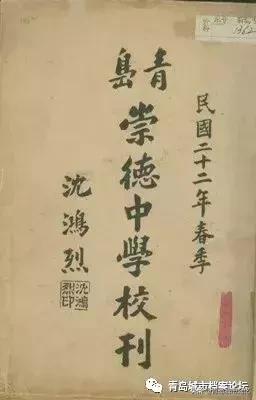 民國二十二年春季
青島
崇德中學校刊
沈鴻烈
沈鴻
烈印
青岛城市档案论坛